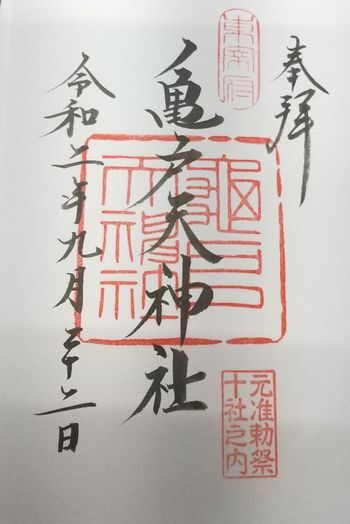 奉拝
東宰府
亀戸天神社
元准勅祭
十社之内
令和二年九月二十二日